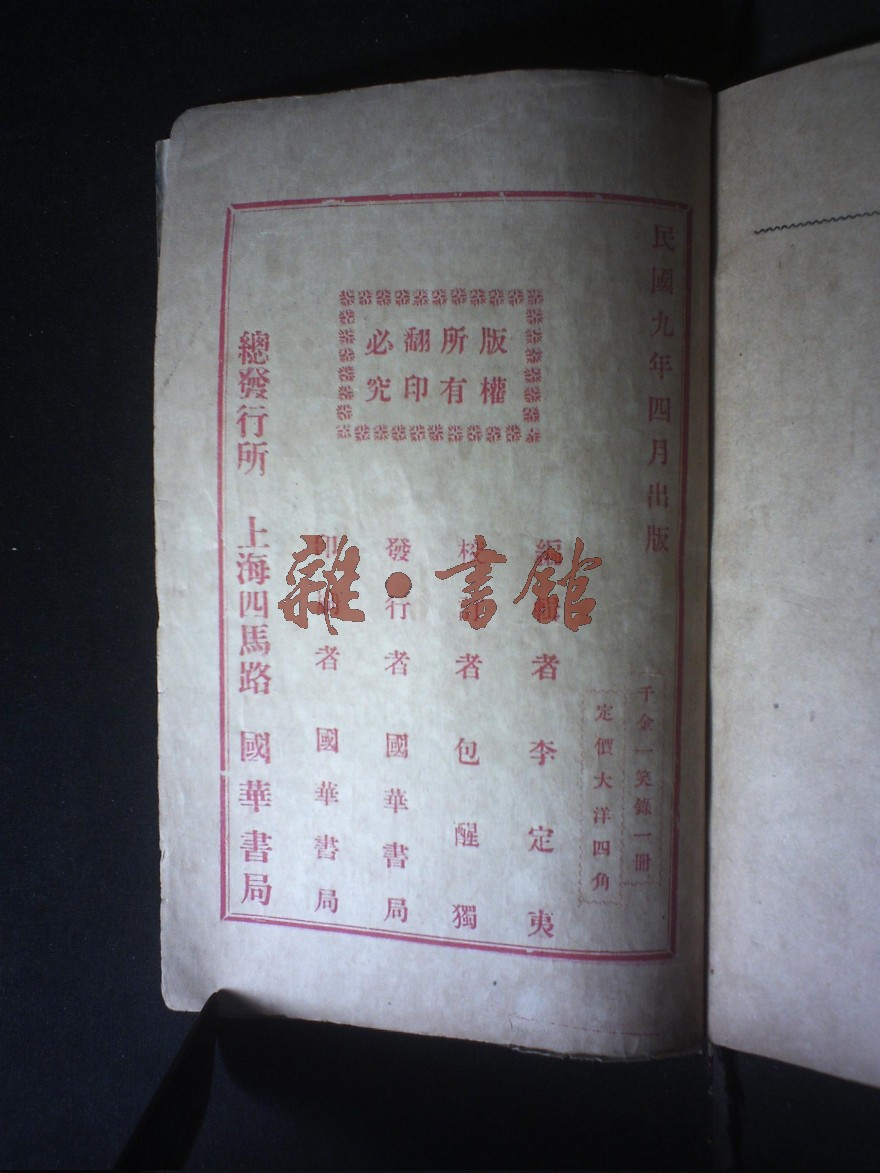 民國九年四月出版
千金一笑錄一冊
定價大洋四角
版權
所有
翻印
必究
編者李定夷
校者包醒獨
發行者國華書局
印者國華書局
總發行所 上海四馬路 國華書局
雜·書館